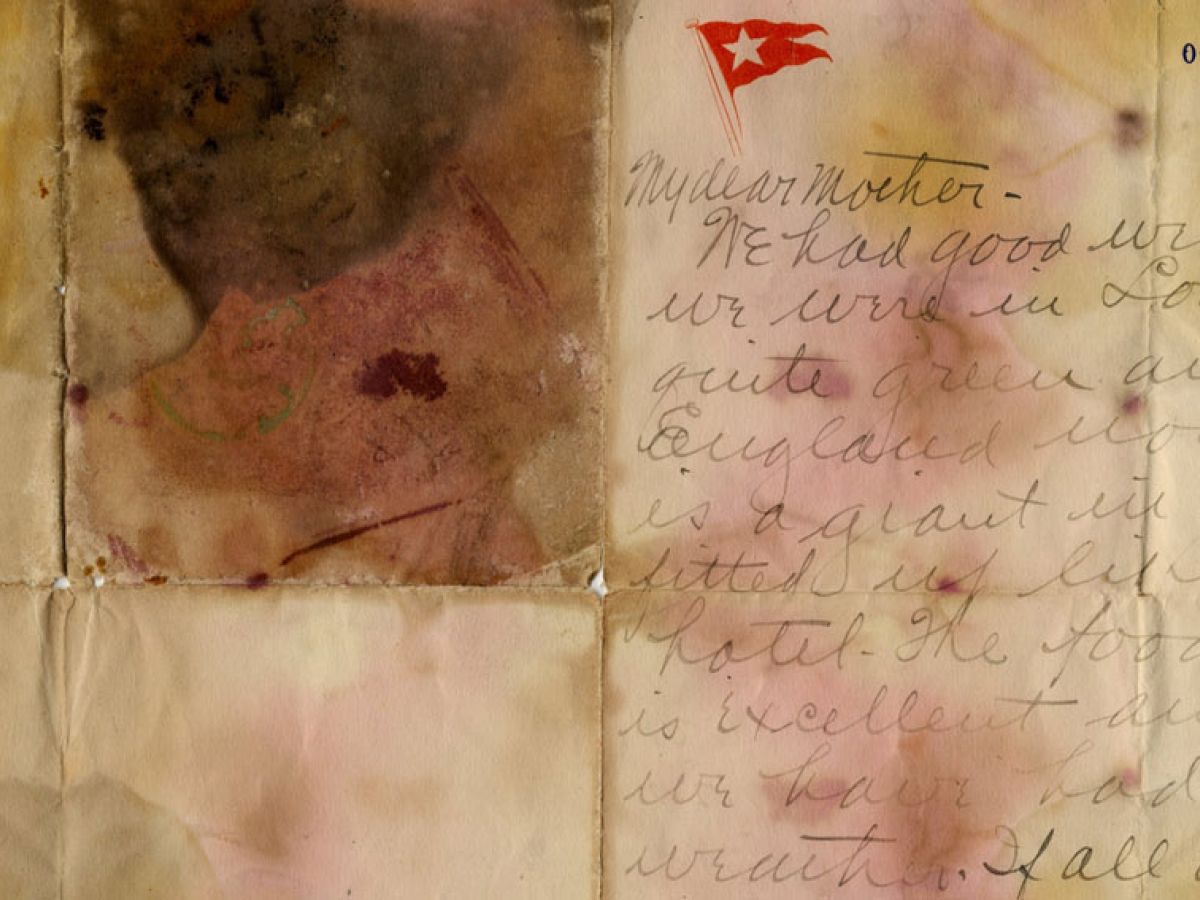 0
My dear Mother-
We had good we
we were in Lo
quite green an
England no
is a giant in
fitted up lik
hotel-The food
is Excellent an
we have had
weather. If all